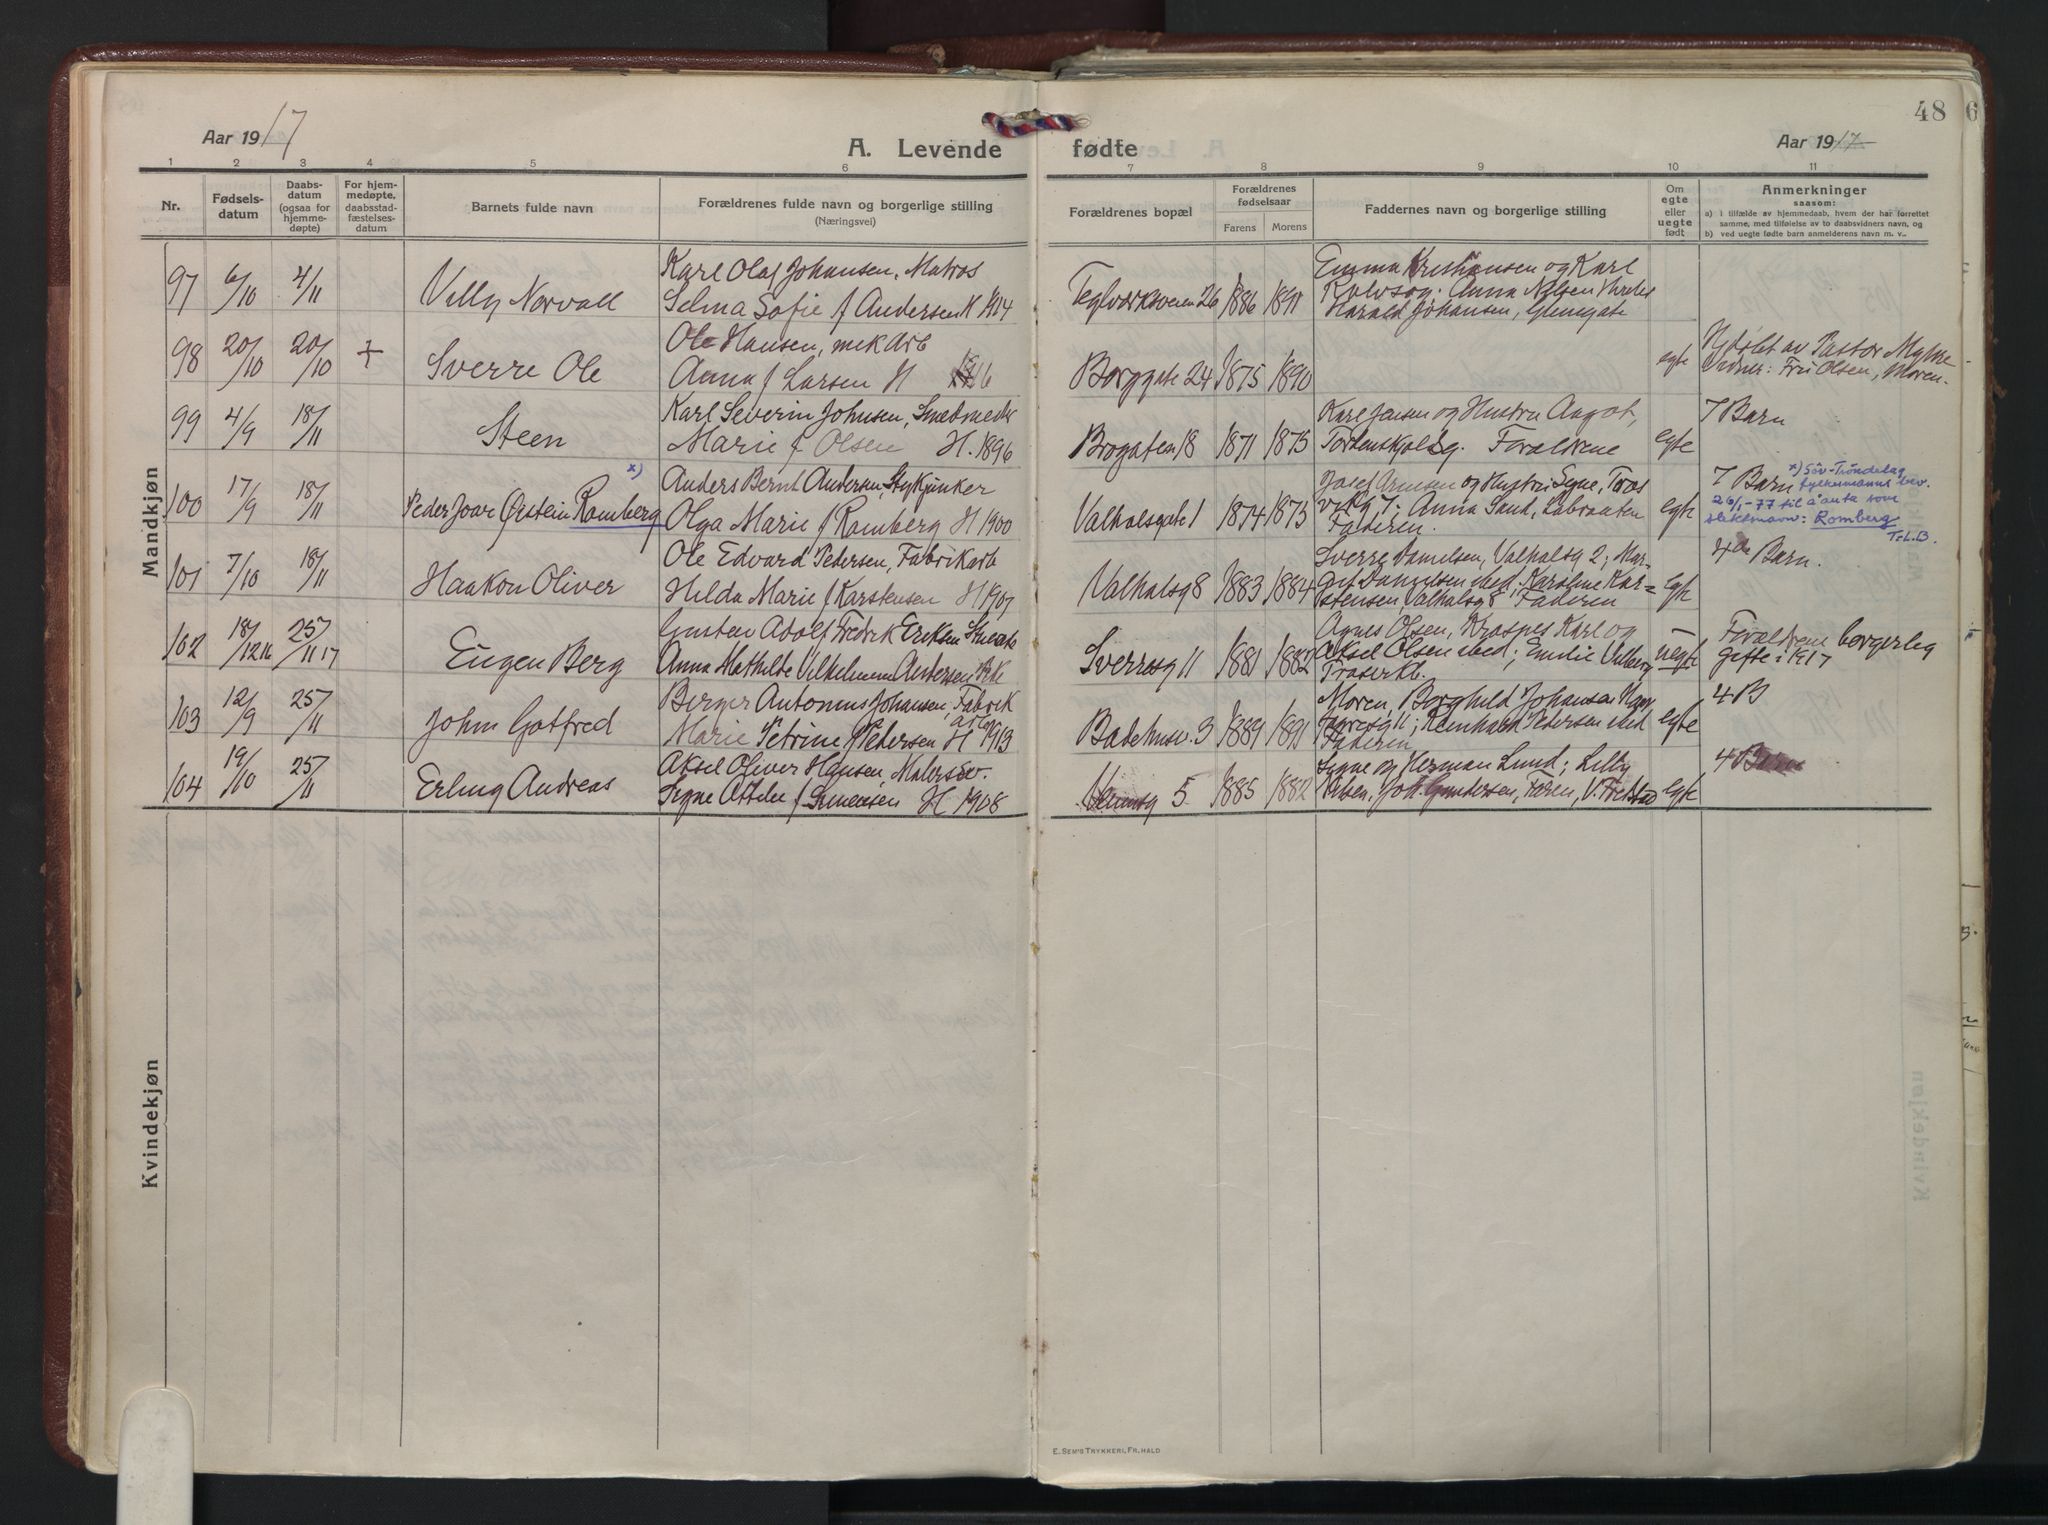 48 6
Aar 1917
A. Levende fødte
Aar 1917
1 2 3 4 5 6 7 8 9 10 11
Nr.
Fødsels-
datum
Daabs-
datum
(ogsaa for
hjemme-
døpte)
For hjem-
medøpte,
daabsstad-
fæstelses-
datum
Barnets fulde navn
Forældrenes fulde navn og borgerlige stilling
(Næringsvei)
Forældrenes bopæl
Forældrenes
fødselsaar
Farens Morens
Faddernes navn og borgerlige stilling
Om
egte
eller
uegte
født
Anmerkninger
saasom:
a) i tilfælde av hjemmedaab, hvem der har forrettet
samme, med tilføielse av to daabsvidners navn, og
b) ved uegte fødte barn anmelderens navn m. v..
Mandkjøn
97 6/10 4/11 Villy Norvall
Karl Olaf Johansen, Matros
Selma Sofie f Andersen H 1914
Teglverksveien 26 1886 1891
Emma Kristiansen og Karl
Anna Nilsen
Harald Johansen, Glemgate
98 20/10 20/10 + Sverre Ole
Ole Hansen, mek Arb
Anna f Larsen H 1916
Borggate 24 1875 1890
egte
Hjdøbt av Pastor
Vidner: Fru Olsen, Moren.
99 4/9 18/11 Steen
Karl Severin Johnsen, Smedmester
Marie f Olsen H. 1896
Brogaten 18 1871 1875
Karl Jensen og Hustru Aagot,
Tordenskjolsg. Forældrene
egte
7 Barn
100 17/9 18/11 Peder Joar Ørstein Romberg x)
Anders Bernt Andersen, Stykjunker
Olga Marie f Ramberg H 1900
Valhalsgate 1 1874 1875
Josef Arntsen og Hustru Signe,
Anna Sand, Labraaten
Faderen.
egte
7 Barn
x) Sør-Trøndelag
fylkesmanns bev.
26/1-77 til å anta som
slektsnavn: Romberg
T.L.B.
101 7/10 18/11 Haakon Oliver
Ole Edvard Pedersen, Fabrikarb
Hilda Marie f Karstensen H 1907
Valhalsg 8 1883 1884
Sverre Danielsen, Valhalsg 2; Mar-
git Danielsen sted, Karoline Kar=
stensen, Valhalsg 8 Faderen
egte
4de Barn.
102 18/12 16 25/11 17 Eugen Berg
Gustav Adolf Fredrik Eriksen
Anna Mathilde Vilhelmine Andersen
Sverresg 11 1881 1882
Agnes Olsen, Karl og
Aksel Olsen sted; Emilie
Traserkb.
uegte
Forældrene borgerleg
gifte i 1917
103 12/9 25/11 John Gotfred
Berger Antonius Johansen, Fabrik
arb
Marie Petrine f Pedersen H 1913
Badehusv. 3 1889 1891
Moren, Borghild Johansen
Reinhald Pedersen sted
Faderen
egte
4 B
104 19/10 25/11 Erling Andreas
Aksel Oliver Hansen, Malersv.
Signe Ottilie f Simensen H 1908
5 1885 1882
Signe og Herman Lund; Lilly
Nilsen, Joh. Gundersen, Faren, V. Fredstad
egte
4 Barn
Kvindekjøn
E. SEM'S TRYKKERI, FR. HALD